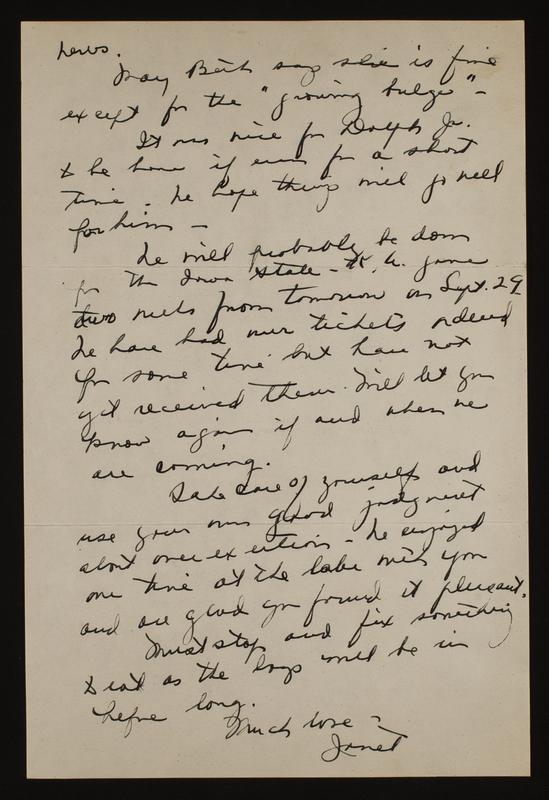 news.
Mary Beth says she is fine
except for the "growing bulge" -
It was nice for Dolph Jr.
to be home if even for a short
time - We hope things will go well
for him -
We will probably be down
for the Iowa State - K.U. game
two weeks from tomorrow on Sept. 29.
We have had our tickets ordered
for some time but have not
yet received them. Will let you
know again if and when we
are coming.
Take care of yourself and
use your own good judgment
about over exertion - We enjoyed
our time at the lake with you
and are glad you found it pleasant.
Must stop and fix something
to eat as the boys will be in
before long.
Much love -
Janet